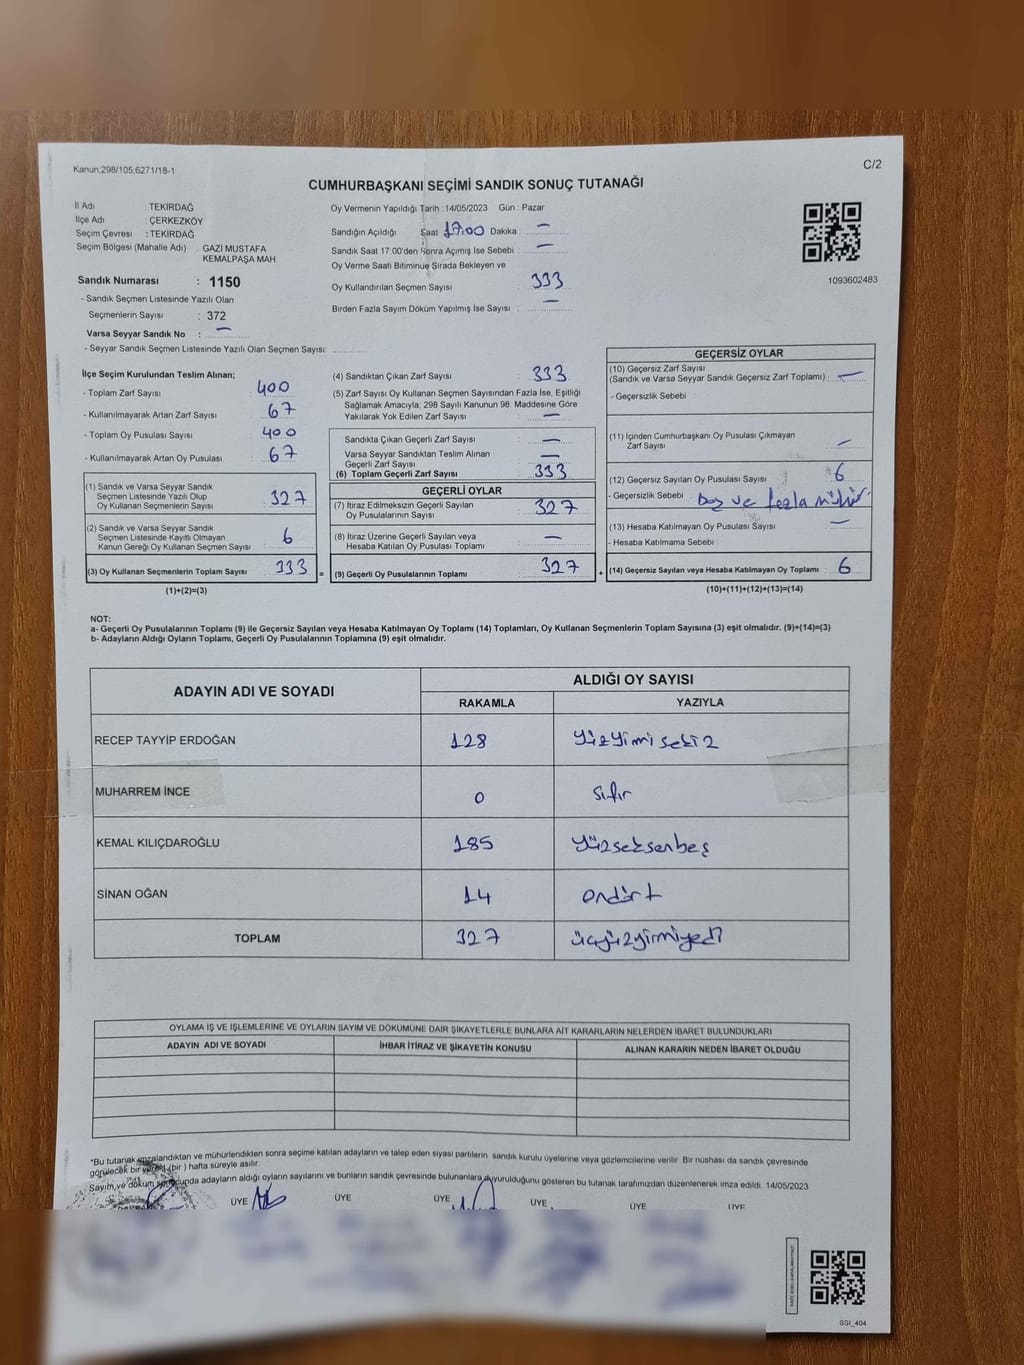 Kanun;298/105;6271/18-1
C/2
CUMHURBAŞKANI SEÇİMİ SANDIK SONUÇ TUTANAĞI
İl Adı : TEKİRDAĞ
İlçe Adı : ÇERKEZKÖY
Seçim Çevresi : TEKİRDAĞ
Seçim Bölgesi (Mahalle Adı) : GAZİ MUSTAFA
KEMALPAŞA MAH.
Sandık Numarası : 1150
- Sandık Seçmen Listesinde Yazılı Olan
Seçmenlerin Sayısı : 372
Varsa Seyyar Sandık No : —
- Seyyar Sandık Seçmen Listesinde Yazılı Olan Seçmen Sayısı:
Oy Vermenin Yapıldığı Tarih : 14/05/2023 Gün : Pazar
Sandığın Açıldığı Saat 17:00 Dakika : —
Sandık Saat 17:00'den Sonra Açımış İse Sebebi : —
Oy Verme Saati Bitiminde Sırada Bekleyen ve
Oy Kullandırılan Seçmen Sayısı : 333
Birden Fazla Sayım Döküm Yapılmış İse Sayısı : —
1093602483
İlçe Seçim Kurulundan Teslim Alınan;
- Toplam Zarf Sayısı : 400
- Kullanılmayarak Artan Zarf Sayısı : 67
- Toplam Oy Pusulası Sayısı : 400
- Kullanılmayarak Artan Oy Pusulası : 67
(1) Sandık ve Varsa Seyyar Sandık
Seçmen Listesinde Yazılı Olup
Oy Kullanan Seçmenlerin Sayısı : 327
(2) Sandık ve Varsa Seyyar Sandık
Seçmen Listesinde Kayıtlı Olmayan
Kanun Gereği Oy Kullanan Seçmen Sayısı : 6
(3) Oy Kullanan Seçmenlerin Toplam Sayısı : 333 =
(1)+(2)=(3)
(4) Sandıktan Çıkan Zarf Sayısı : 333
(5) Zarf Sayısı Oy Kullanan Seçmen Sayısından Fazla İse, Eşitliği
Sağlamak Amacıyla, 298 Sayılı Kanunun 98. Maddesine Göre
Yakılarak Yok Edilen Zarf Sayısı : —
Sandıkta Çıkan Geçerli Zarf Sayısı : —
Varsa Seyyar Sandıktan Teslim Alınan
Geçerli Zarf Sayısı : —
(6) Toplam Geçerli Zarf Sayısı : 333
GEÇERLİ OYLAR
(7) İtiraz Edilmeksizin Geçerli Sayılan
Oy Pusulalarının Sayısı : 327
(8) İtiraz Üzerine Geçerli Sayılan veya
Hesaba Katılan Oy Pusulası Toplamı : —
(9) Geçerli Oy Pusulalarının Toplamı : 327 +
GEÇERSİZ OYLAR
(10) Geçersiz Zarf Sayısı
(Sandık ve Varsa Seyyar Sandık Geçersiz Zarf Toplamı) : —
- Geçersizlik Sebebi :
(11) İçinden Cumhurbaşkanı Oy Pusulası Çıkmayan
Zarf Sayısı : —
(12) Geçersiz Sayılan Oy Pusulası Sayısı : 6
- Geçersizlik Sebebi : Boş ve fazla mühür
(13) Hesaba Katılmayan Oy Pusulası Sayısı : —
- Hesaba Katılmama Sebebi :
(14) Geçersiz Sayılan veya Hesaba Katılmayan Oy Toplamı : 6
(10)+(11)+(12)+(13)=(14)
NOT:
a- Geçerli Oy Pusulalarının Toplamı (9) ile Geçersiz Sayılan veya Hesaba Katılmayan Oy Toplamı (14) Toplamları, Oy Kullanan Seçmenlerin Toplam Sayısına (3) eşit olmalıdır. (9)+(14)=(3)
b- Adayların Aldığı Oyların Toplamı, Geçerli Oy Pusulalarının Toplamına (9) eşit olmalıdır.
ADAYIN ADI VE SOYADI
ALDIĞI OY SAYISI
RAKAMLA YAZIYLA
RECEP TAYYİP ERDOĞAN 128 yüzyimisekiz
MUHARREM İNCE 0 sıfır
KEMAL KILIÇDAROĞLU 185 yüzseksenbeş
SİNAN OĞAN 14 ondört
TOPLAM 327 üçyüzyirmiyedi
OYLAMA İŞ VE İŞLEMLERİNE VE OYLARIN SAYIM VE DÖKÜMÜNE DAİR ŞİKAYETLERLE BUNLARA AİT KARARLARIN NELERDEN İBARET BULUNDUKLARI
ADAYIN ADI VE SOYADI İHBAR İTİRAZ VE ŞİKAYETİN KONUSU ALINAN KARARIN NEDEN İBARET OLDUĞU
*Bu tutanak imzalandıktan ve mühürlendikten sonra seçime katılan adayların ve talep eden siyasi partilerin sandık kurulu üyelerine veya gözlemcilerine verilir. Bir nüshası da sandık çevresinde
görülecek bir yere (bir) hafta süreyle asılır.
Sayım ve döküm sonucunda adayların aldığı oyların sayılarını ve bunların sandık çevresinde bulunanlara duyurulduğunu gösteren bu tutanak tarafımızdan düzenlenerek imza edildi. 14/05/2023
ÜYE ÜYE ÜYE ÜYE ÜYE ÜYE
SSI_404